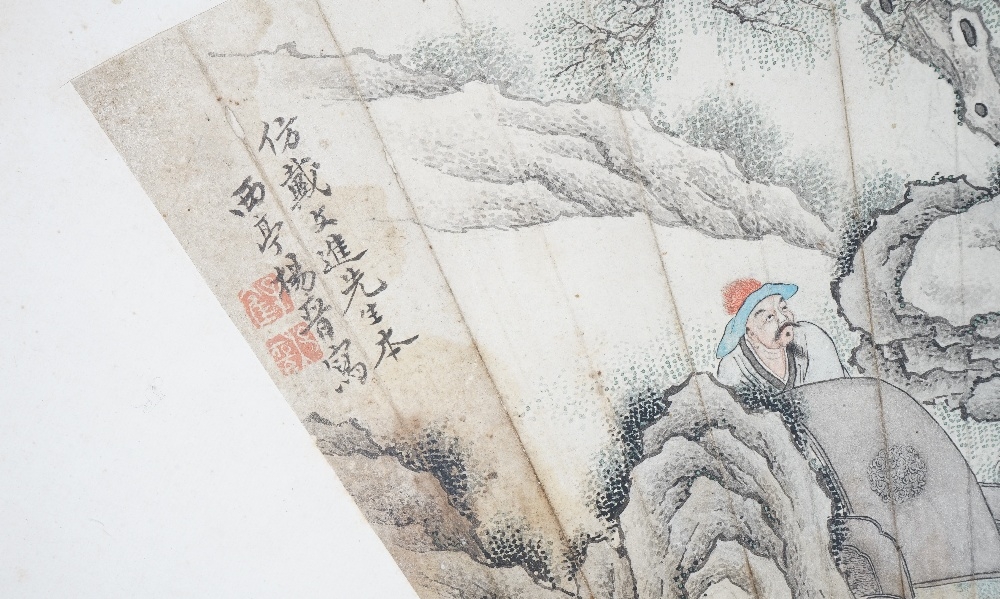 仿戴文進先生本
西亭楊晉寫